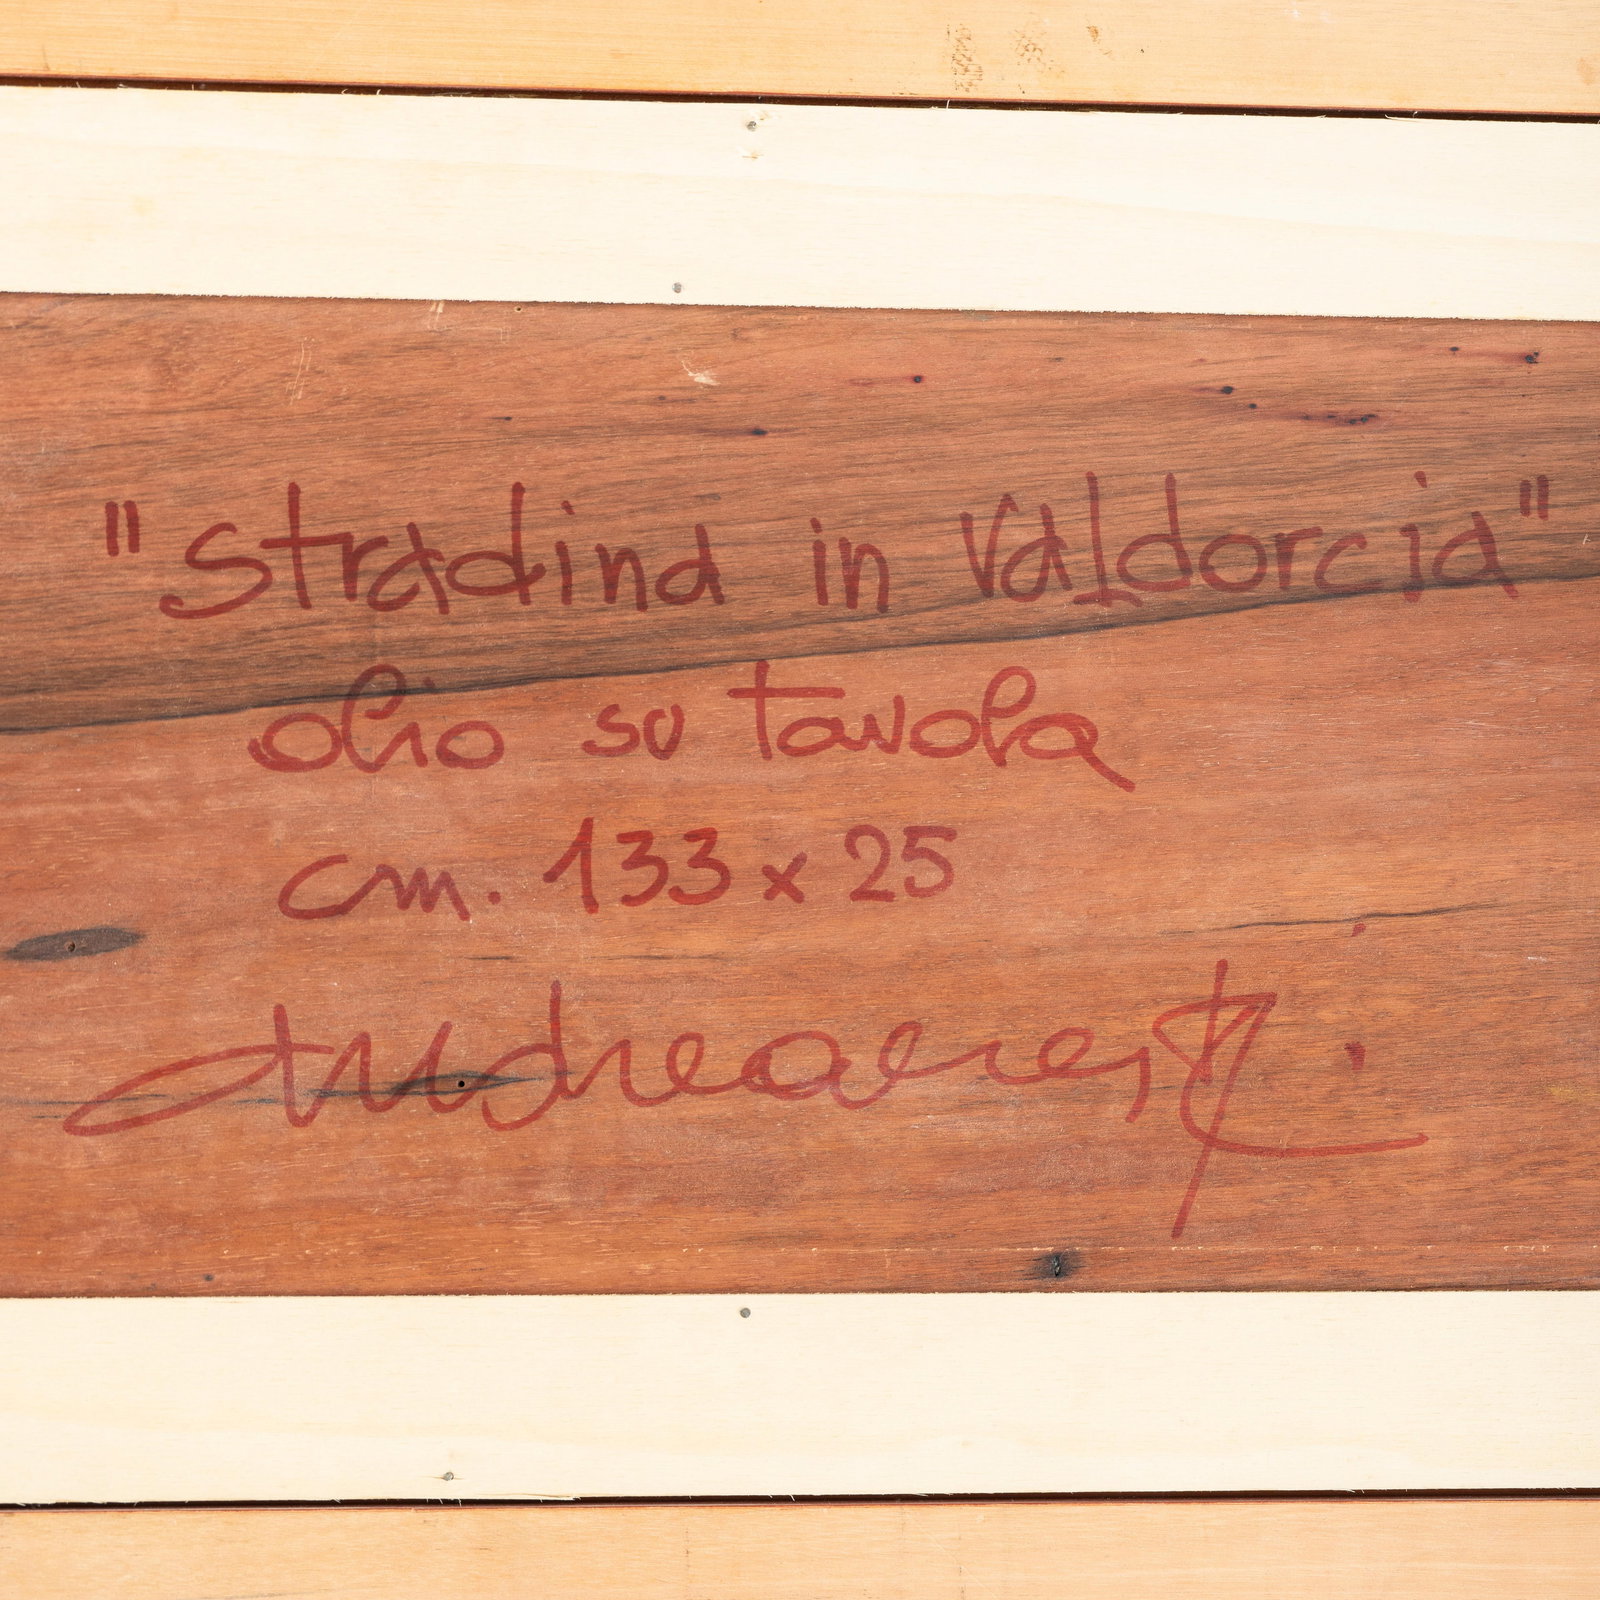 "Stradina in Valdorcia"
olio su tavola
cm. 133 x 25